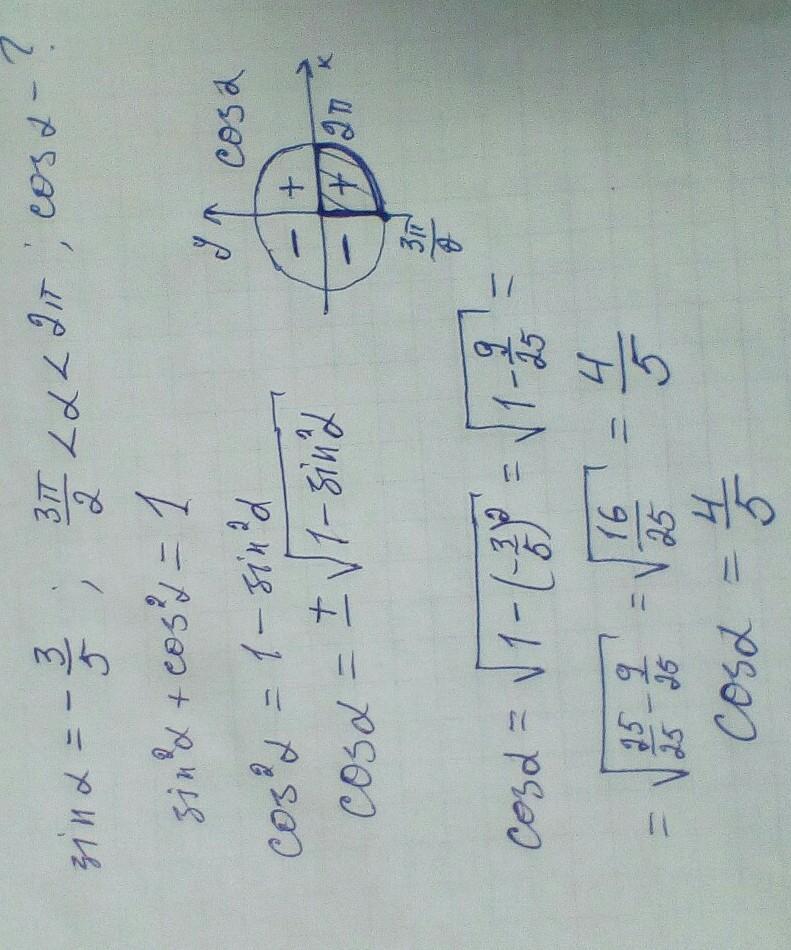 sin α = - 3/5 ; 3π/2 < α < 2π ; cos α - ?
sin²α + cos²α = 1
cos²α = 1 - sin²α
cos α = ± √(1 - sin²α)
y cos α
- +
- + 2π x
3π/2
cos α = √(1 - (-3/5)²) = √(1 - 9/25) =
= √(25/25 - 9/25) = √(16/25) = 4/5
cos α = 4/5